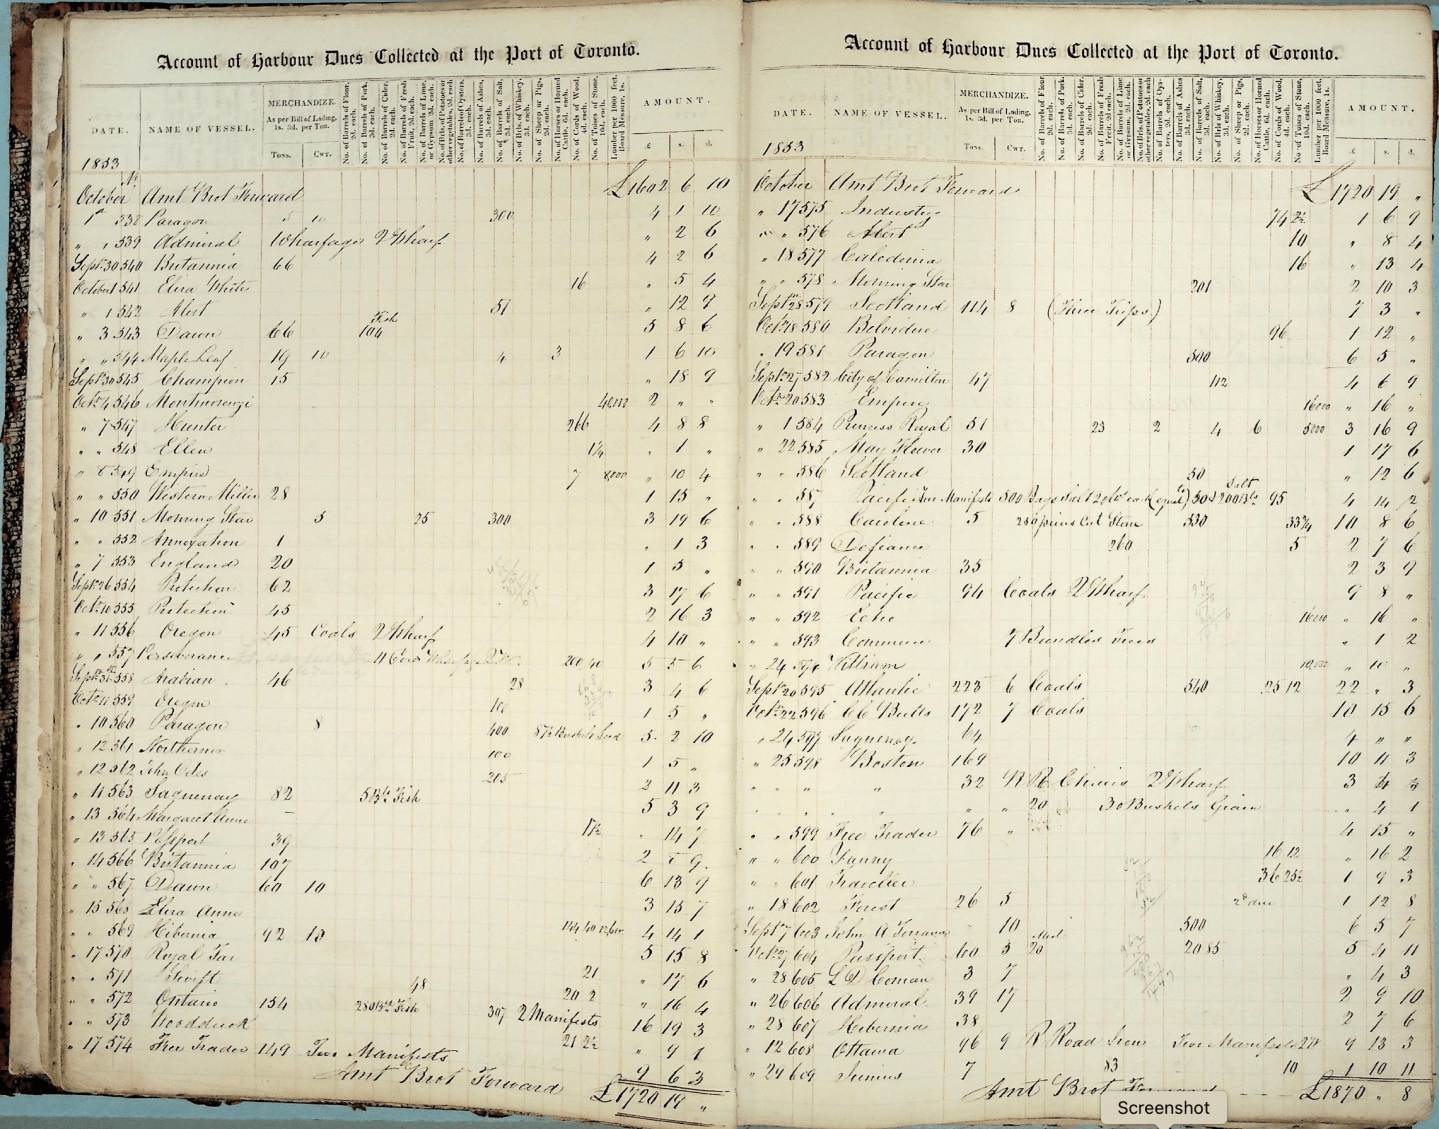 Account of Harbour Dues Collected at the Port of Toronto.
DATE. NAME OF VESSEL. MERCHANDIZE. As per Bill of Lading, 1s. 3d. per Ton. Tons. Cwt. No. of Barrels of Flour, 2d. each. No. of Barrels of Pork. No. of Barrels of Cider, 2d. each. No. of Barrels of Fresh Fruit, 2d. each. No. of Barrels of Lime, or Gypsum 2d. each. No. of Barrels of Oysters, 2d. each. No. of Barrels of Ashes, 2d. each. No. of Barrels of Salt, 3d. each. No. of Brls. of Whiskey, No. of Sheep or Pigs, 2d. each. No. of Horses or Horned Cattle, 6d. each. No. of Cords of Wood, No. of Toises of Stone, 10d. each. Lumber per 1000 feet, Board Measure, 1s. AMOUNT. £ s. d.
1853
October Amt Brot Forward £1602 6 10
1st 538 Paragon 10 300 4 1 10
" " 539 Admiral Wharfage 2 Wharf " 2 6
Sept. 30 540 Britannia 66 4 2 6
October 1 541 Eliza White 16 " 5 4
" 1 542 Alert 51 " 12 9
" 3 543 Dawn 66 Fish 104 5 8 6
" " 544 Maple Leaf 19 10 4 3 1 6 10
Sept. 30 545 Champion 15 " 18 9
Octr. 4 546 Montmorenci 40,000 2 " "
" 7 547 Hunter 266 4 8 8
" " 548 Ellen 1¼ " 1 "
" 549 Empire 7 8,000 " 10 4
" " 550 Western Miller 28 1 15 "
" 10 551 Morning Star 5 25 300 3 19 6
" " 552 Annexation 1 " 1 3
" 7 553 England 20 1 5 "
Sept. 26 554 Protection 62 3 17 6
Octr. 10 555 Protection 45 2 16 3
" 11 556 Oregon 45 Coals 2 Wharf 4 10 "
" " 557 Perseverance 200 40 5 5 6
Sept. 558 Arabian 46 28 3 4 6
Octr. 11 559 Oregon 100 1 5 "
" 10 560 Paragon 8 400 5 2 10
" 12 561 Northerner 100 1 5 "
" 12 562 John Oates 205 2 11 3
" 11 563 Saguenay 82 5 Bls Fish 5 3 9
" 13 564 Margaret Anne 17½ " 14 7
" 13 565 Passport 39 2 9
" 14 566 Britannia 107 6 13 9
" " 567 Dawn 60 10 3 15 7
" 15 568 Eliza Anne 144 40 4 14 1
" " 569 Hibernia 92 10 5 15 8
" 17 570 Royal Tar 21 " 17 6
" " 571 Swift 48 20 2 " 16 4
" " 572 Ontario 154 280 Bls Fish 307 2 Manifests 16 19 3
" " 573 Woodduck 21 2½ " 9 1
" 17 574 Free Trader 149 Two Manifests 9 6 3
Amt Brot Forward £1720 19 "
Account of Harbour Dues Collected at the Port of Toronto.
DATE. NAME OF VESSEL. MERCHANDIZE. As per Bill of Lading, 1s. 3d. per Ton. Tons. Cwt. No. of Barrels of Flour, 2d. each. No. of Barrels of Pork. No. of Barrels of Cider, 2d. each. No. of Barrels of Ashes 2d. each. No. of Barrels of Salt, 3d. each. No. of Brls. of Whiskey, No. of Sheep or Pigs, 2d. each. No. of Horses or Horned Cattle, 6d. each. No. of Cords of Wood, No. of Toises of Stone, 10d. each. Lumber per 1000 feet, Board Measure, 1s. AMOUNT. £ s. d.
1853
October Amt Brot Forward £1720 19 "
" 17 575 Industry 74 2½ 1 6 9
" " 576 Alert 10 " 8 4
" 18 577 Caledonia 16 " 13 4
" " 578 Morning Star 201 2 10 3
Sept. 28 579 Scotland 114 8 (Three Trips) 7 3 "
Octr. 18 580 Belvidere 96 1 12 "
" 19 581 Paragon 500 6 5 "
Sept. 27 582 City of Hamilton 47 112 4 6 9
Octr. 20 583 Empire 16000 " 16 "
" 1 584 Princess Royal 51 23 2 4 6 5000 3 16 9
" 22 585 May Flower 30 1 17 6
" " 586 Scotland 50 " 12 6
" " 587 Pacific Two Manifests 500 Bags Salt 95 4 14 2
" " 588 Caroline 5 280 pieces Cut Stone 550 33¾ 10 8 6
" " 589 Defiance 260 5 2 7 6
" " 590 Britannia 35 2 3 9
" " 591 Pacific 94 Coals 2 Wharf 9 8 "
" " 592 Echo 16000 " 16 "
" " 593 Commerce 7 Bundles Trees " 1 2
" 24 594 William 10,000 " 10 "
Sept. 20 595 Atlantic 223 6 Coals 540 25 12 22 " 3
Octr. 22 596 CC Butts 172 7 Coals 10 15 6
" 24 597 Saguenay 64 4 " "
" 25 598 Boston 169 10 11 3
" " " " 32 R R Chairs 2 Wharf 3 4 3
" " 20 30 Bushels Grain " 4 1
" " 599 Free Trader 76 4 15 "
" " 600 Fanny 16 12 " 16 2
" " 601 Traveller 36 25½ 1 9 3
" 18 602 Forest 26 5 1 12 8
Sept. 7 603 John A 10 500 6 5 7
Octr. 27 604 Passport 60 5 20 20 85 5 4 11
" 28 605 3 7 " 4 3
" 26 606 Admiral 39 17 2 9 10
" 28 607 Hibernia 38 2 7 6
" 12 608 Ottawa 96 9 R Road Iron Two Manifests 20 9 13 3
" 29 609 Junius 7 83 10 1 10 11
Amt Brot Forward £1870 " 8
Screenshot